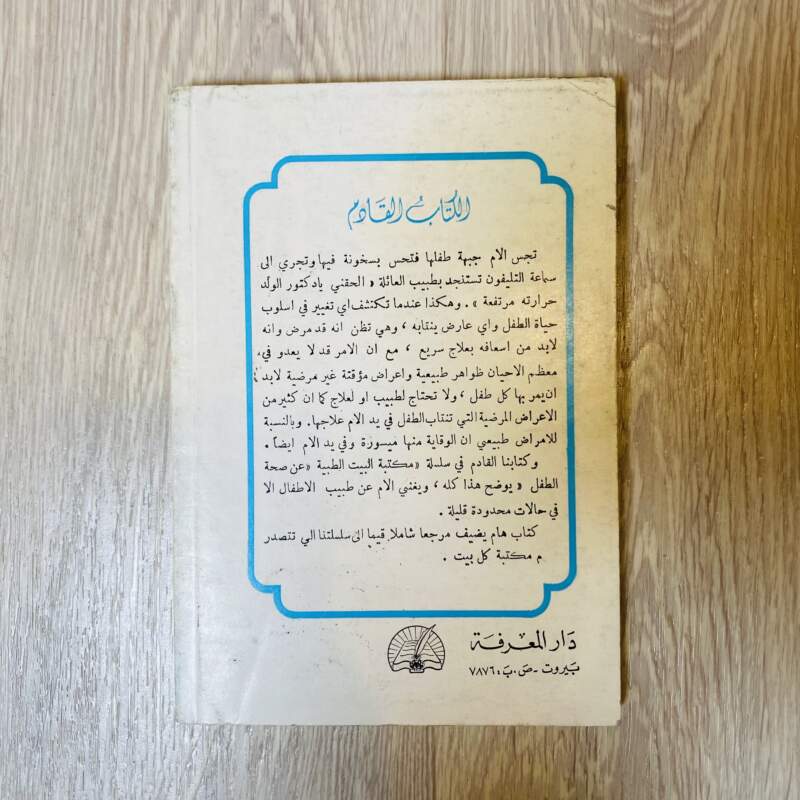 الكتاب القادم
تجس الام جبهة طفلها فتحس بسخونة فيها وتجري الى
سماعة التليفون تستنجد بطبيب العائلة « الحقني يادكتور الولد
حرارته مرتفعة » . وهكذا عندما تكتشف اي تغيير في اسلوب
حياة الطفل واي عارض ينتابه ، وهي تظن انه قد مرض وانه
لابد من اسعافه بعلاج سريع ، مع ان الامر قد لا يعدو في
معظم الاحيان ظواهر طبيعية واعراض مؤقتة غير مرضية لابد
ان يمر بها كل طفل ، ولا تحتاج لطبيب او لعلاج كما ان كثير من
الاعراض المرضية التي تنتاب الطفل في يد الام علاجها. وبالنسبة
للامراض طبيعي ان الوقاية منها ميسورة وفي يد الام ايضاً .
وكتابنا القادم في سلسلة «مكتبة البيت الطبية «عن صحة
الطفل » يوضح هذا كله ، ويغني الام عن طبيب الاطفال الا
في حالات محدودة قليلة .
كتاب هام يضيف مرجعا شاملا قيما الى سلسلتنا التي تتصدر
م مكتبة كل بيت .
دار المعرفة
بيروت - ص . ب : ٧٨٧٦